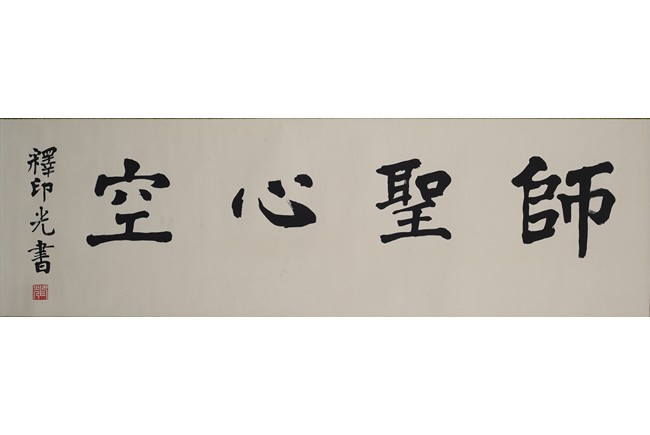 師聖心空
釋印光書